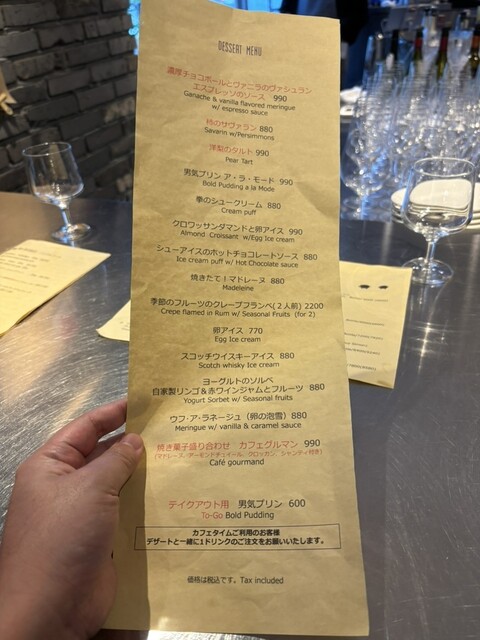 DESSERT MENU
濃厚チョコボールとヴァニラのヴァシュラン
エスプレッソのソース 990
Ganache & vanilla flavored meringue
w/ espresso sauce
柿のサヴァラン 880
Savarin w/Persimmons
洋梨のタルト 990
Pear Tart
男気プリン ア・ラ・モード 990
Bold Pudding a la Mode
拳のシュークリーム 880
Cream puff
クロワッサンダマンドと卵アイス 990
Almond Croissant w/Egg Ice cream
シューアイスのホットチョコレートソース 880
Ice cream puff w/ Hot Chocolate sauce
焼きたて！マドレーヌ 880
Madeleine
季節のフルーツのクレープフランベ(２人前) 2200
Crêpe flamed in Rum w/ Seasonal Fruits (for 2)
卵アイス 770
Egg Ice cream
スコッチウイスキーアイス 880
Scotch whisky Ice cream
ヨーグルトのソルベ
自家製リンゴ＆赤ワインジャムとフルーツ 880
Yogurt Sorbet w/ Seasonal fruits
ウフ・ア・ラネージュ（卵の泡雪）880
Meringue w/ vanilla & caramel sauce
焼き菓子盛り合わせ カフェグルマン 990
(マドレーヌ、アーモンドチュイール、クロッカン、シャンティ付き)
Café gourmand
テイクアウト用 男気プリン 600
To-Go Bold Pudding
カフェタイムご利用のお客様
デザートと一緒に1ドリンクのご注文をお願いいたします。
価格は税込です。Tax included